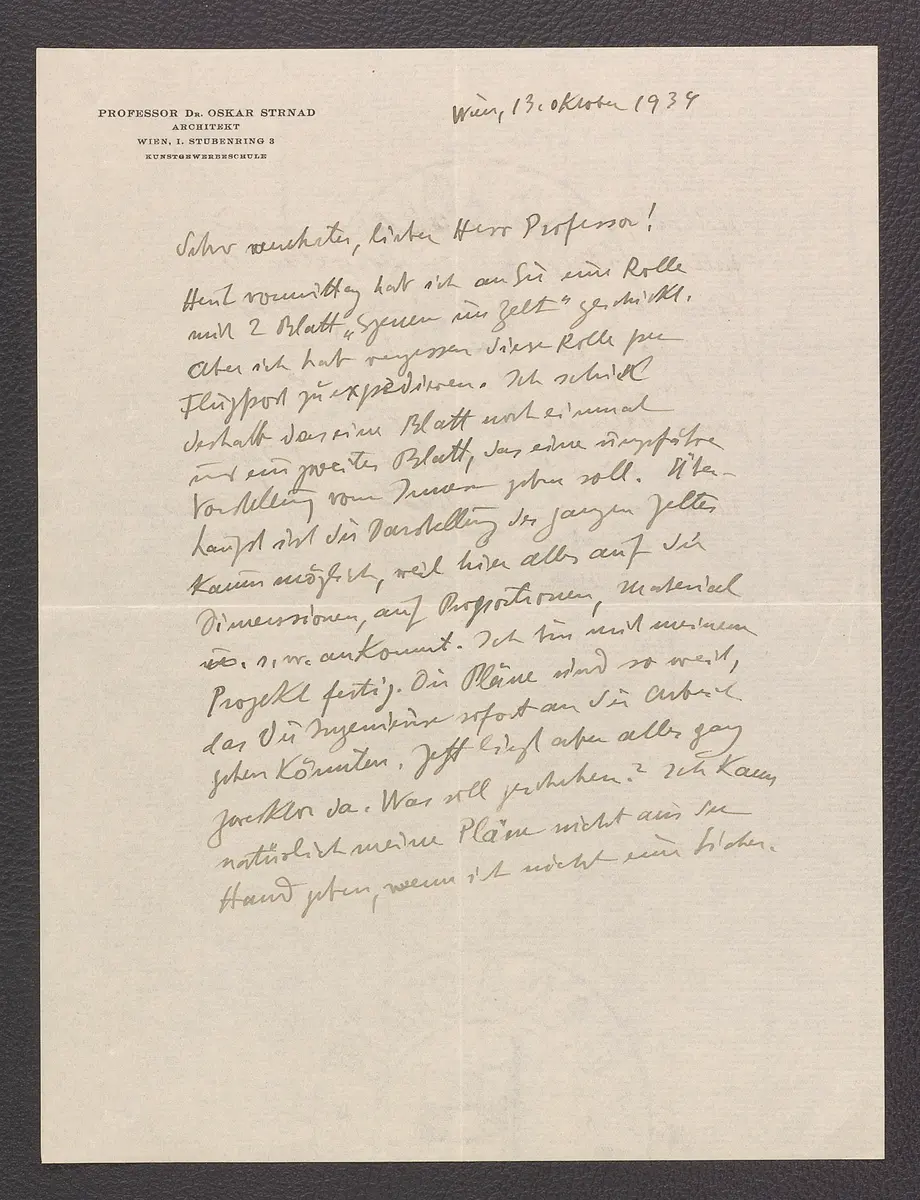 PROFESSOR Dr. OSKAR STRNAD
ARCHITEKT
WIEN, I. STUBENRING 3
KUNSTGEWERBESCHULE
Wien, 13. Oktober 1934
Sehr verehrter, lieber Herr Professor!
Heut vormittag hab ich an Sie eine Rolle
mit 2 Blatt „Szenen im Zelt" geschickt.
Aber ich hab vergessen diese Rolle per
Flugpost zu expedieren. Ich schick
deshalb das eine Blatt noch einmal
und ein zweites Blatt, das eine ungefähre
Vorstellung vom Innern geben soll. Über-
haupt ist die Darstellung des ganzen Zeltes
kaum möglich, weil hier alles auf die
Dimensionen, auf Proportionen, Material
u. s. w. ankommt. Ich bin mit meinem
Projekt fertig. Die Pläne sind so weit,
das die Ingenieure sofort an die Arbeit
gehen könnten. Jetzt liegt aber alles ganz
zwecklos da. Was soll geschehen? Ich kann
natürlich meine Pläne nicht aus der
Hand geben, wenn ich nicht eine Sicher-